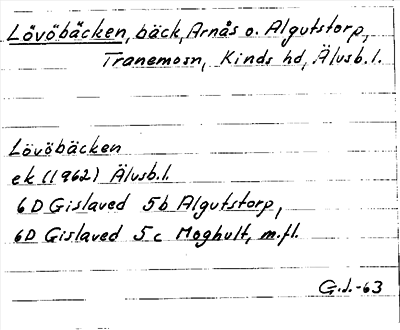 Lövöbäcken, bäck, Arnås o. Algutstorp,
Tranemosn, Kinds hd, Älvsb. l.
Lövöbäcken
ek (1962) Älvsb. l.
6D Gislaved 5b Algutstorp,
6D Gislaved 5c Moghult, m.fl.
G.J.-63